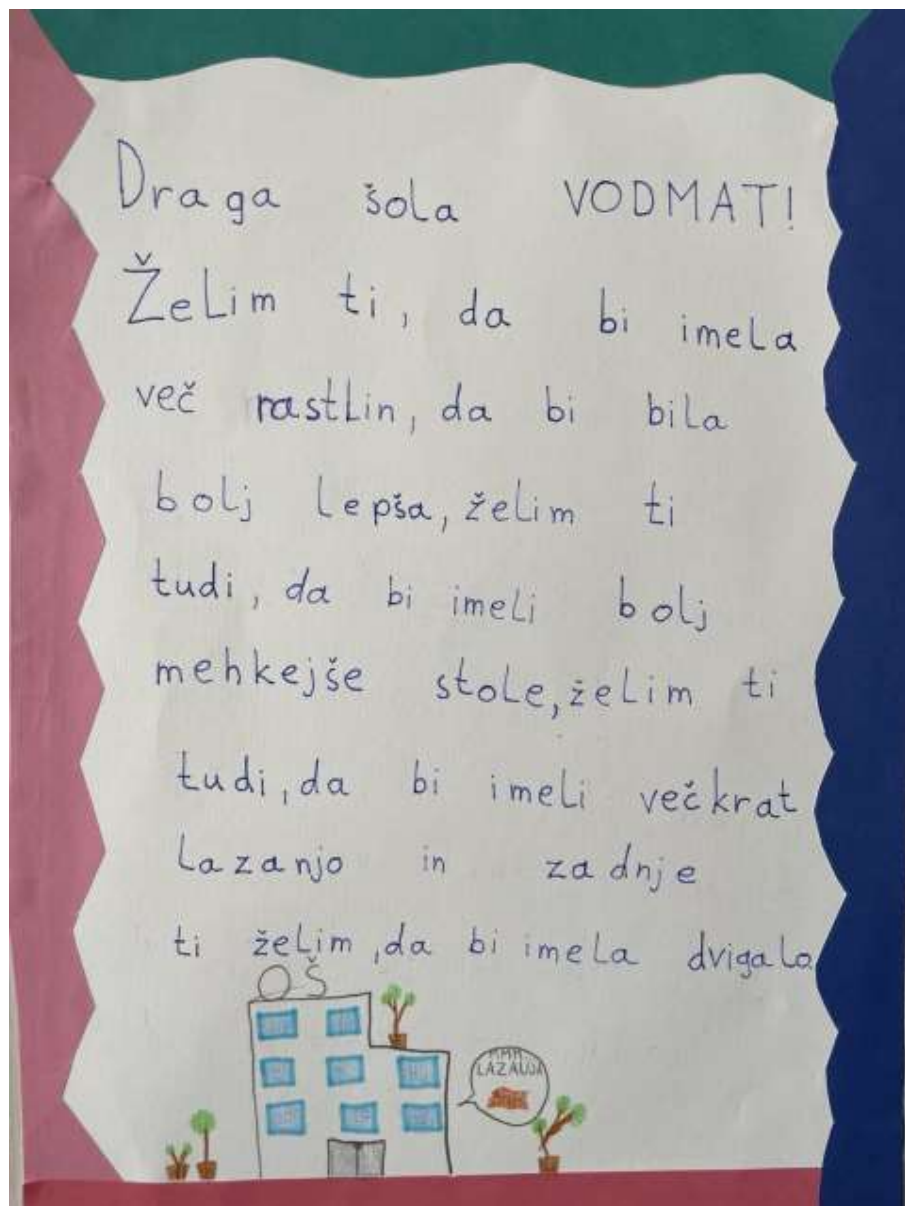 Draga šola VODMAT!
Želim ti, da bi imela
več rastlin, da bi bila
bolj lepša, želim ti
tudi, da bi imeli bolj
mehkejše stole, želim ti
tudi, da bi imeli večkrat
lazanjo in zadnje
ti želim, da bi imela dvigalo
OŠ
MMM
LAZANJA